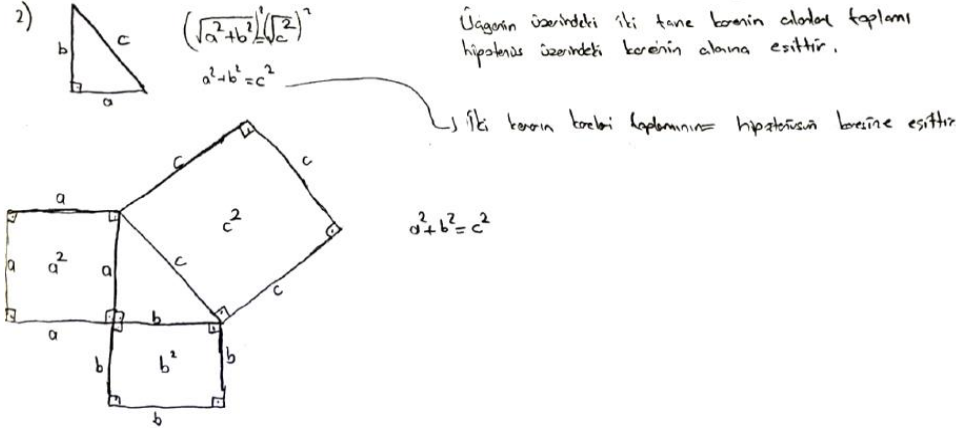 2)
b
c
a
(√a²+b²)² = (√c²)²
a²+b²=c²
Üçgenin üzerindeki iki tane karenin alanlar toplamı
hipotenüs üzerindeki karenin alanına eşittir.
İki kenarın kareleri toplamının= hipotenüsün karesine eşittir
a
a
a²
a
a
c
c
c²
c
c
b
b
b²
b
b
a²+b²=c²